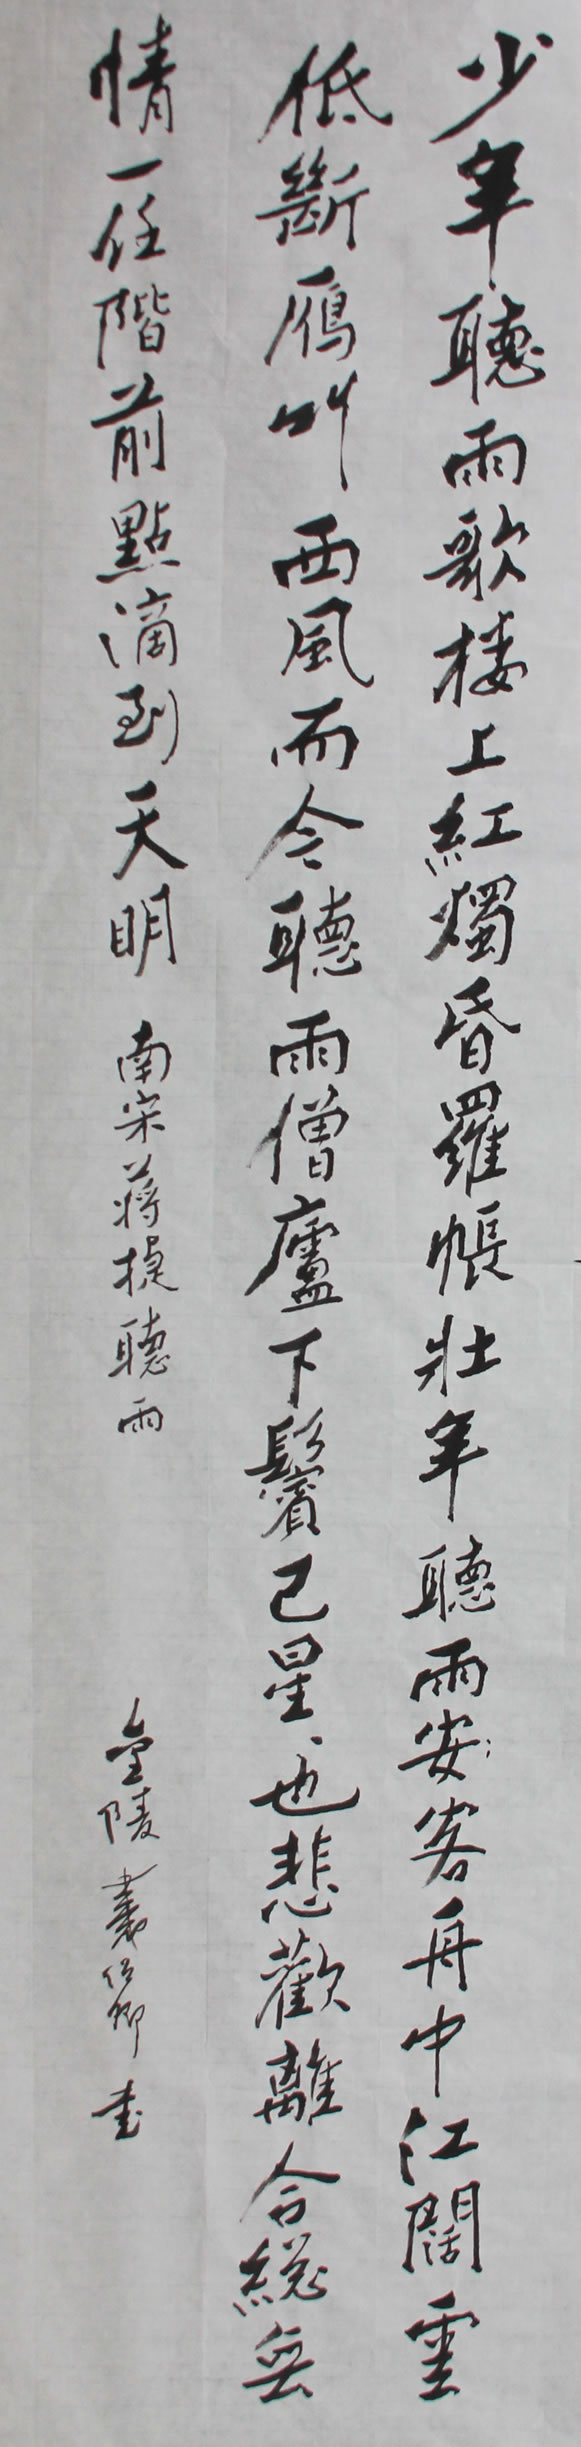 少年聽雨歌楼上紅燭昏羅帳壮年聽雨安客舟中江闊雲
低斷鴈叫西風而今聽雨僧廬下鬢已星、也悲歡離合総無
情一任階前點滴到天明 南宋蔣捷聽雨 金陵 書